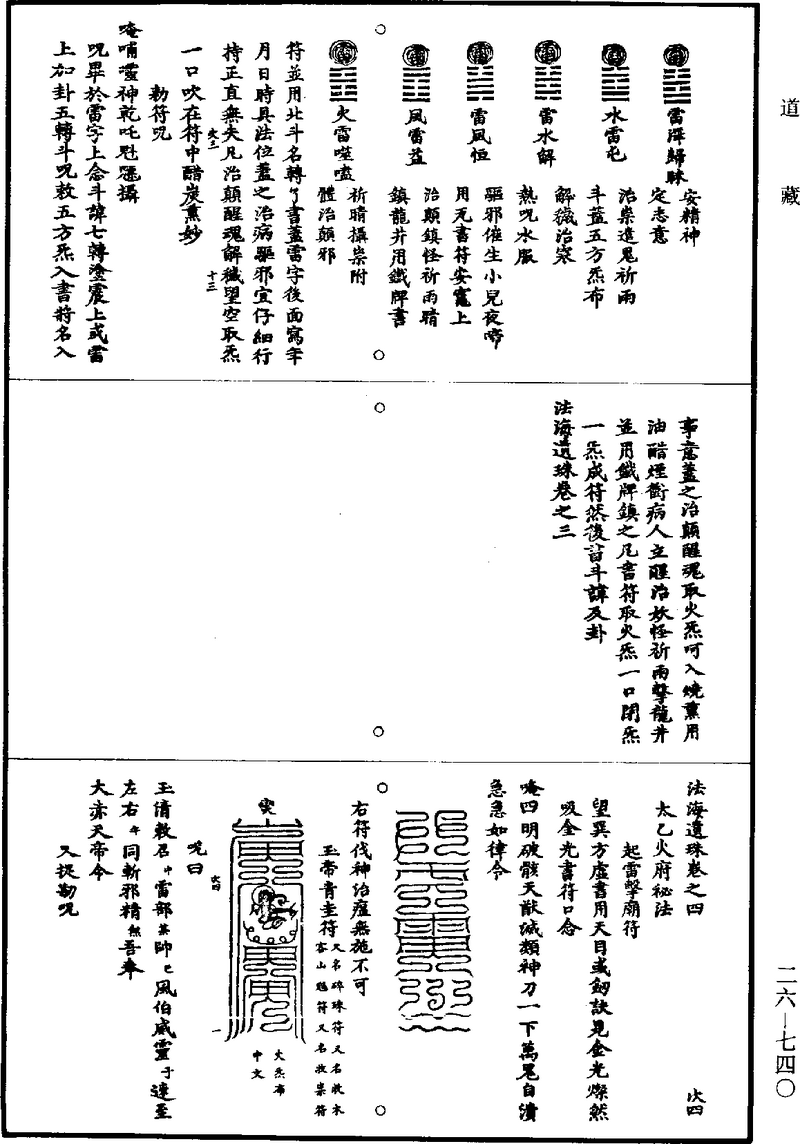 道藏
雷澤歸妹
安精神
定志意
水雷屯
治祟遣鬼祈雨
斗蓋五方炁布
雷水解
解穢治寒
熱呪水服
雷風恒
驅邪催生小兒夜啼
用元書符安竈上
風雷益
治顛鎮怪祈雨晴
鎮龍井用鐵牌書
火雷噬嗑
祈晴攝祟附
體治顛邪
符並用北斗名轉了書蓋雷字後面寫年
月日時具法位蓋之治病驅邪宜仔細行
持正直無失凡治顛醒魂解穢望空取炁
一口吹在符中醋炭熏妙
勑符呪
唵哺𠺗神乾吒魁䰢攝
呪畢於雷字上念斗諱七轉塗震上或雷
上加卦五轉斗呪敕五方炁入書將名入
事意蓋之治顛醒魂取火炁呵入燒熏用
油醋煙衝病人立醒治妖怪祈雨擊龍井
並用鐵牌鎮之凡書符取火炁一口閉炁
一炁成符然後誥斗諱及卦
法海遺珠卷之三
法海遺珠卷之四
太乙火府秘法
起雷擊廟符
望巽方虛書用天目或劒訣見金光燦然
吸金光書符口念
唵四明破骸天猷滅類神刀一下萬鬼自潰
急急如律令
右符伐神治瘟無施不可
玉帝青圭符
又名碎珠符又名收水
火炁布
中文
呪曰
玉清敕召 雷部 帥 風伯威靈于速至
左右 同斬邪精 吾奉
大赤天帝令
又捉勘呪
二六—七四〇